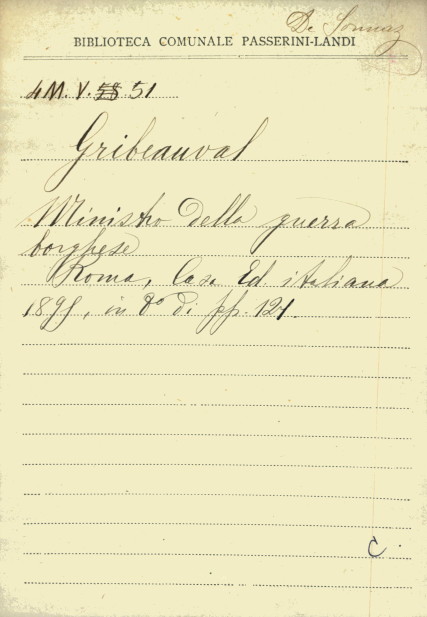 De Sonnaz
BIBLIOTECA COMUNALE PASSERINI-LANDI
4M. V. 58 51
Gribeauval
Ministro della guerra
borghese
Roma, Casa Ed italiana
in 8º di pp. 121.
C.